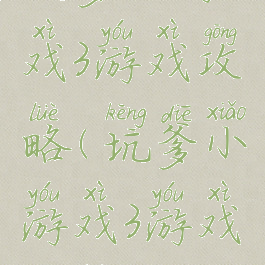 xì yóu xì gōng
戏3游戏攻
lüè kēng diē xiǎo
略(坑爹小
yóu xì yóu xì
游戏3游戏